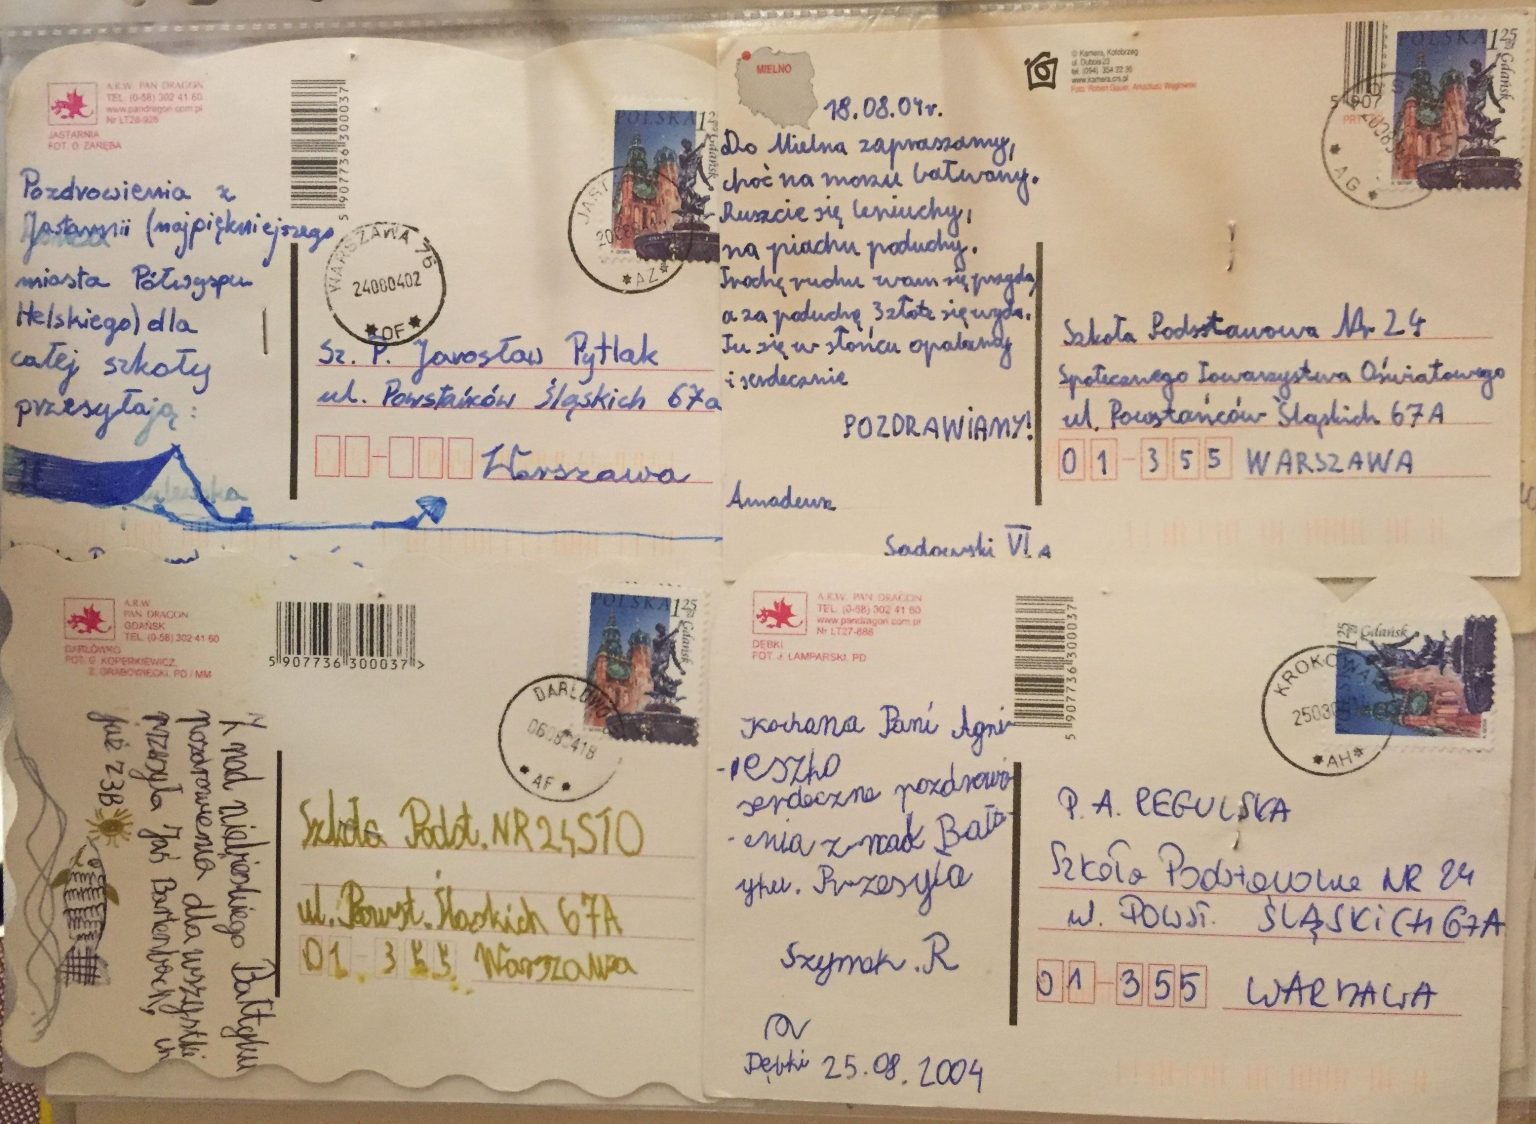 A.R.W. PAN DRAGON
TEL. (0-58) 302 41 60
www.pandragon.com.pl
Nr LT28-926
JASTARNIA
FOT. D. ZARĘBA
5 907736 300037
POLSKA
Gdańsk
WARSZAWA 76
24080402
OF
AZ
Pozdrowienia z
Jastarnii (najpiękniejszego
miasta Półwyspu
Helskiego) dla
całej szkoły
przesyłają:
Sz. P. Jarosław Pytlak
ul. Powstańców Śląskich 67a
Warszawa
MIELNO
© Kamera, Kołobrzeg
ul. Dubois 23
tel. (094) 354 22 95
www.kamera.crs.pl
POLSKA 1 25 zł
Gdańsk
5 907
AG
18.08.04r.
Do Mielna zapraszamy,
choć na morzu bałwany.
Ruszcie się leniuchy,
na piachu poduchy.
Trochę ruchu wam się przyda,
a za poduchę 3 złote się wyda.
Tu się w słońcu opalamy
i serdecznie
POZDRAWIAMY!
Amadeusz
Sadowski VI A
Szkoła Podstawowa Nr 24
Społecznego Towarzystwa Oświatowego
ul. Powstańców Śląskich 67A
01-355 WARSZAWA
A.R.W.
PAN DRAGON
GDAŃSK
TEL. (0-58) 302 41 60
DARŁÓWKO
FOT. G. KOPERKIEWICZ,
Z. GRABOWIECKI, PD / MM
5 907736 300037 >
POLSKA 1 25 zł
Gdańsk
DARŁOWO
AF
Z nad niebieskiego Bałtyku
pozdrowienia dla wszystki
przesyła Jaś
już z 3B
Szkoła Podst. NR 24 STO
ul. Powst. Śląskich 67A
01-355 Warszawa
A.R.W. PAN DRAGON
TEL. (0-58) 302 41 60
www.pandragon.com.pl
Nr LT27-886
DĘBKI
FOT. J. LAMPARSKI, PD
5 907736 300037
1 25 zł
Gdańsk
KROKOWA
AH
Kochana Pani Agni
-eszko
serdeczne pozdrowi
-enia z nad Bałt-
yku. Przesyła
Szymek. R
Dębki 25.08.2004
P. A. REGULSKA
Szkoła Podstawowa NR 24
ul. POWST. ŚLĄSKICH 67A
01-355 WARSZAWA